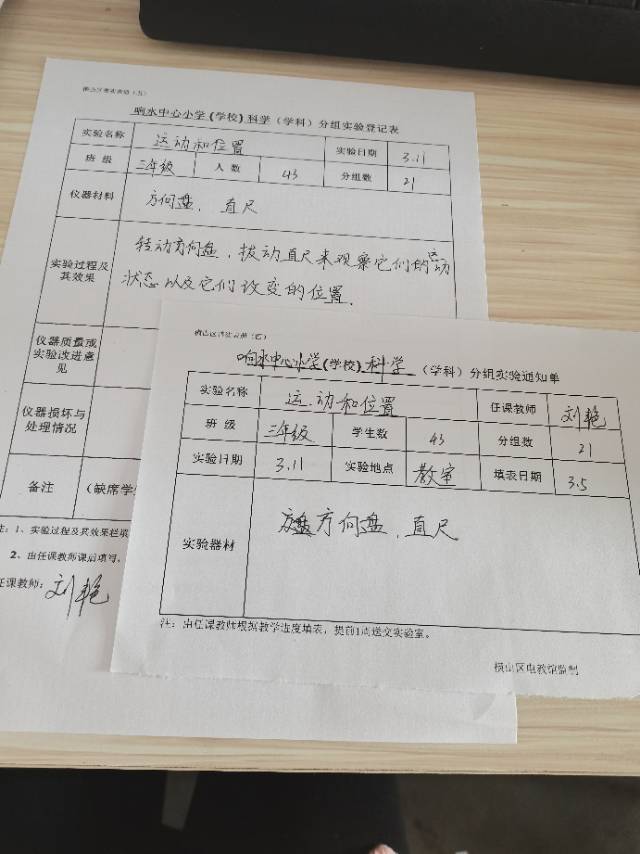 响水中心小学(学校)科学(学科)分组实验登记表
实验名称 运动和位置 实验日期 3.11
班 级 三年级 人 数 43 分组数 21
仪器材料 方向盘、直尺
实验过程及其效果
转动方向盘、拔动直尺来观察它们的运动
状态以及它们改变的位置.
仪器质量或
实验改进意
见
仪器损坏与
处理情况
备注 (缺席学
注:1、实验过程及其效果栏填
2、由任课教师课后填写。
任课教师: 刘艳
响水中心小学(学校) 科学 (学科)分组实验通知单
实验名称 运动和位置 任课教师 刘艳
班 级 三年级 学生数 43 分组数 21
实验日期 3.11 实验地点 教室 填表日期 3.5
实验器材 方向盘、直尺
注:由任课教师根据教学进度填表,提前1点送交实验室。
横山区电教馆监制